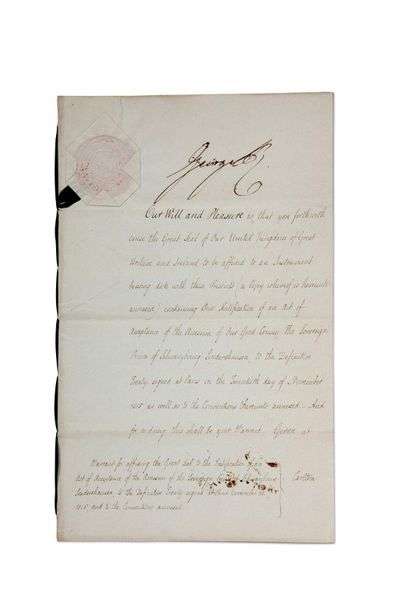 George R
Our Will and Pleasure is that you forthwith
cause the Great Seal of Our United Kingdom of Great
Britain and Ireland to be affixed to an Instrument
bearing date with these Presents a Copy whereof is hereunto
annexed, containing Our Ratification of an Act of
Acceptance of the Accession of Our Good Cousin The Sovereign
Prince of Schwarzburg Sondershausen to the Definitive
Treaty signed at Paris on the Twentieth day of November
1815 as well as to the Conventions thereunto annexed. And
for so doing this shall be your Warrant. Given at
Carlton
Warrant for affixing the Great Seal to the Ratification of an
Act of Acceptance of the Accession of the Sovereign
Sondershausen to the Definitive Treaty signed
1815 and to the Conventions annexed.